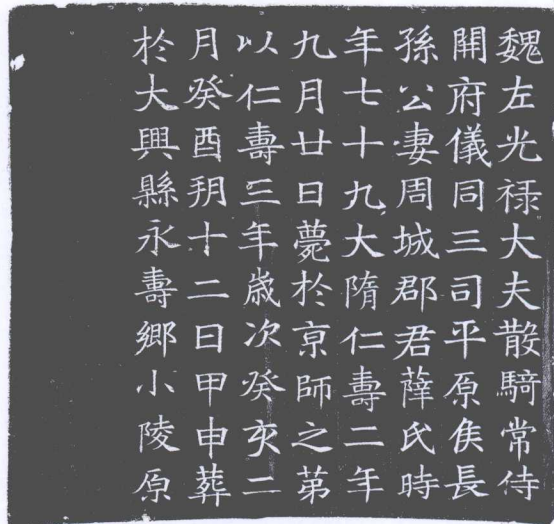 魏左光禄大夫散騎常侍
開府儀同三司平原侯長
孫公妻周城郡君薛氏時
年七十九大隋仁壽二年
九月廿日薨於京師之第
以仁壽三年歲次癸亥二
月癸酉朔十二日甲申葬
於大興縣永壽鄉小陵原